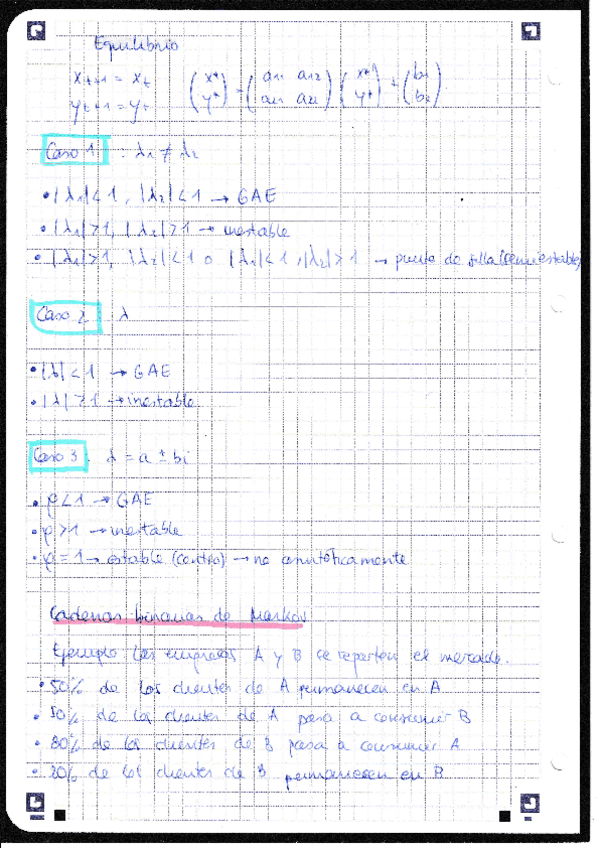 Equilibrio
x_{t+1} = x_t
y_{t+1} = y_t
(x* y*) = (a11 a12 a21 a22) (x* y*) + (b1 b2)
Caso 1 : λ1 ≠ λ2
• |λ1|<1, |λ2|<1 → GAE
• |λ1|>1, |λ2|>1 → inestable
• |λ1|>1, |λ2|<1 o |λ1|<1, |λ2|>1 → punto de silla (semiestable)
Caso 2 λ
• |λ|<1 → GAE
• |λ|≥1 → inestable
Caso 3. λ = a ± bi
• ρ<1 → GAE
• ρ>1 → inestable
• ρ=1 → estable (centro) → no asintóticamente
Cadenas binarias de Markov
Ejemplo Las empresas A y B se reparten el mercado.
• 50% de los clientes de A permanecen en A
• 50% de los clientes de A pasa a consumir B
• 80% de los clientes de B pasa a consumir A
• 20% de los clientes de B permanecen en B